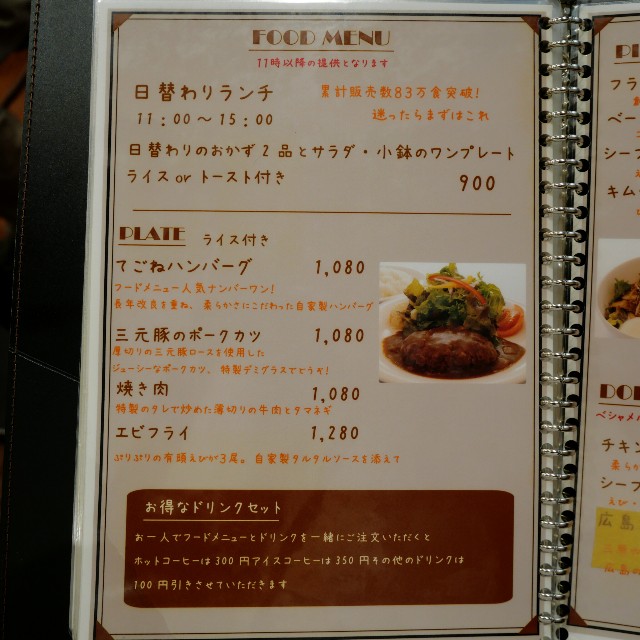 FOOD MENU
11時以降の提供となります
日替わりランチ 累計販売数83万食突破!
11:00～15:00 迷ったらまずはこれ
日替わりのおかず2品とサラダ・小鉢のワンプレート
ライス or トースト付き 900
PLATE ライス付き
てごねハンバーグ 1,080
フードメニュー人気ナンバーワン!
長年改良を重ね、柔らかさにこだわった自家製ハンバーグ
三元豚のポークカツ 1,080
厚切りの三元豚ロースを使用した
ジューシーなポークカツ、特製デミグラスでどうぞ!
焼き肉 1,080
特製のタレで炒めた薄切りの牛肉とタマネギ
エビフライ 1,280
ぷりぷりの有頭えびが3尾。自家製タルタルソースを添えて
お得なドリンクセット
お一人でフードメニューとドリンクを一緒にご注文いただくと
ホットコーヒーは300円アイスコーヒーは350円その他のドリンクは
100円引きさせていただきます
フラ
ベー
シーフ
キム
ベシャメル
チキン
柔らか
シーフ
えび・
広島
広島の